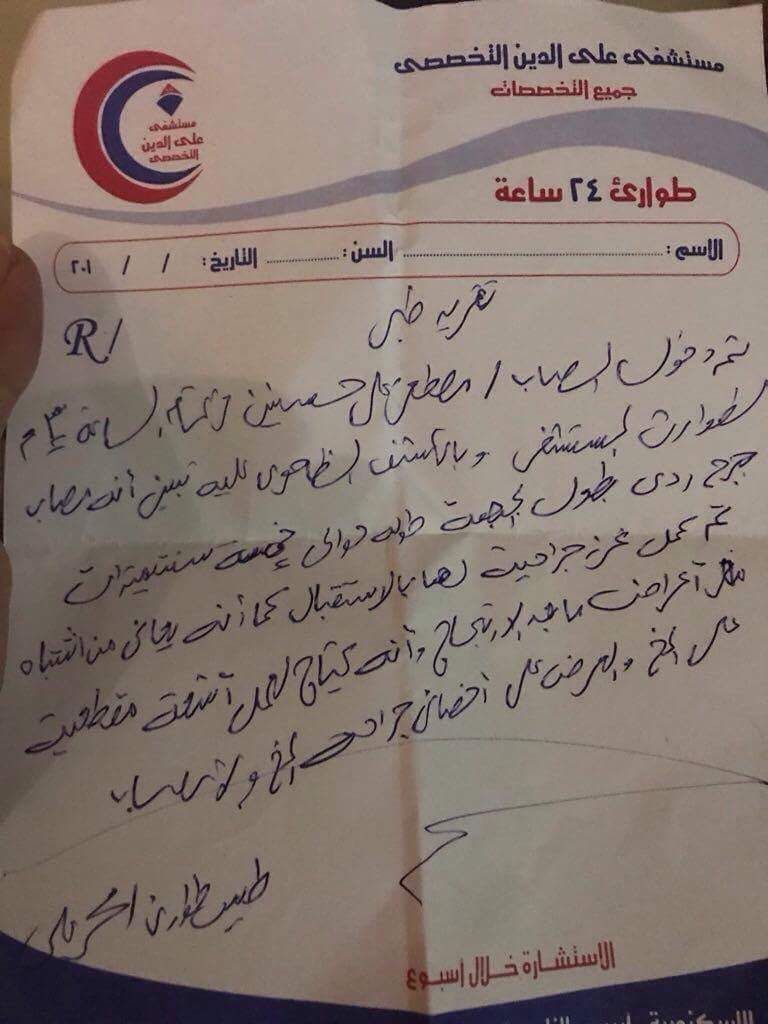 مستشفى على الدين التخصصى
جميع التخصصات
مستشفى
على الدين
التخصصى
طوارئ ٢٤ ساعة
الاسم : السن : التاريخ : / / ٢٠١
R/
تقرير طبى
تم دخول المصاب / مصطفى على حسنين فى تمام الساعة ٣ م
لطوارئ المستشفى وبالكشف الظاهرى عليه تبين أنه مصاب
بجرح ردى بطول الجبهة طوله حوالى خمسة سنتيمترات
تم عمل غرز جراحية لها بالاستقبال كما أنه يعانى من اشتباه
أعراض ما بعد الارتجاج وأنه يحتاج لعمل أشعة مقطعية
على المخ والعرض على أخصائى جراحة المخ والأعصاب
طبيب طوارئ
الاستشارة خلال أسبوع